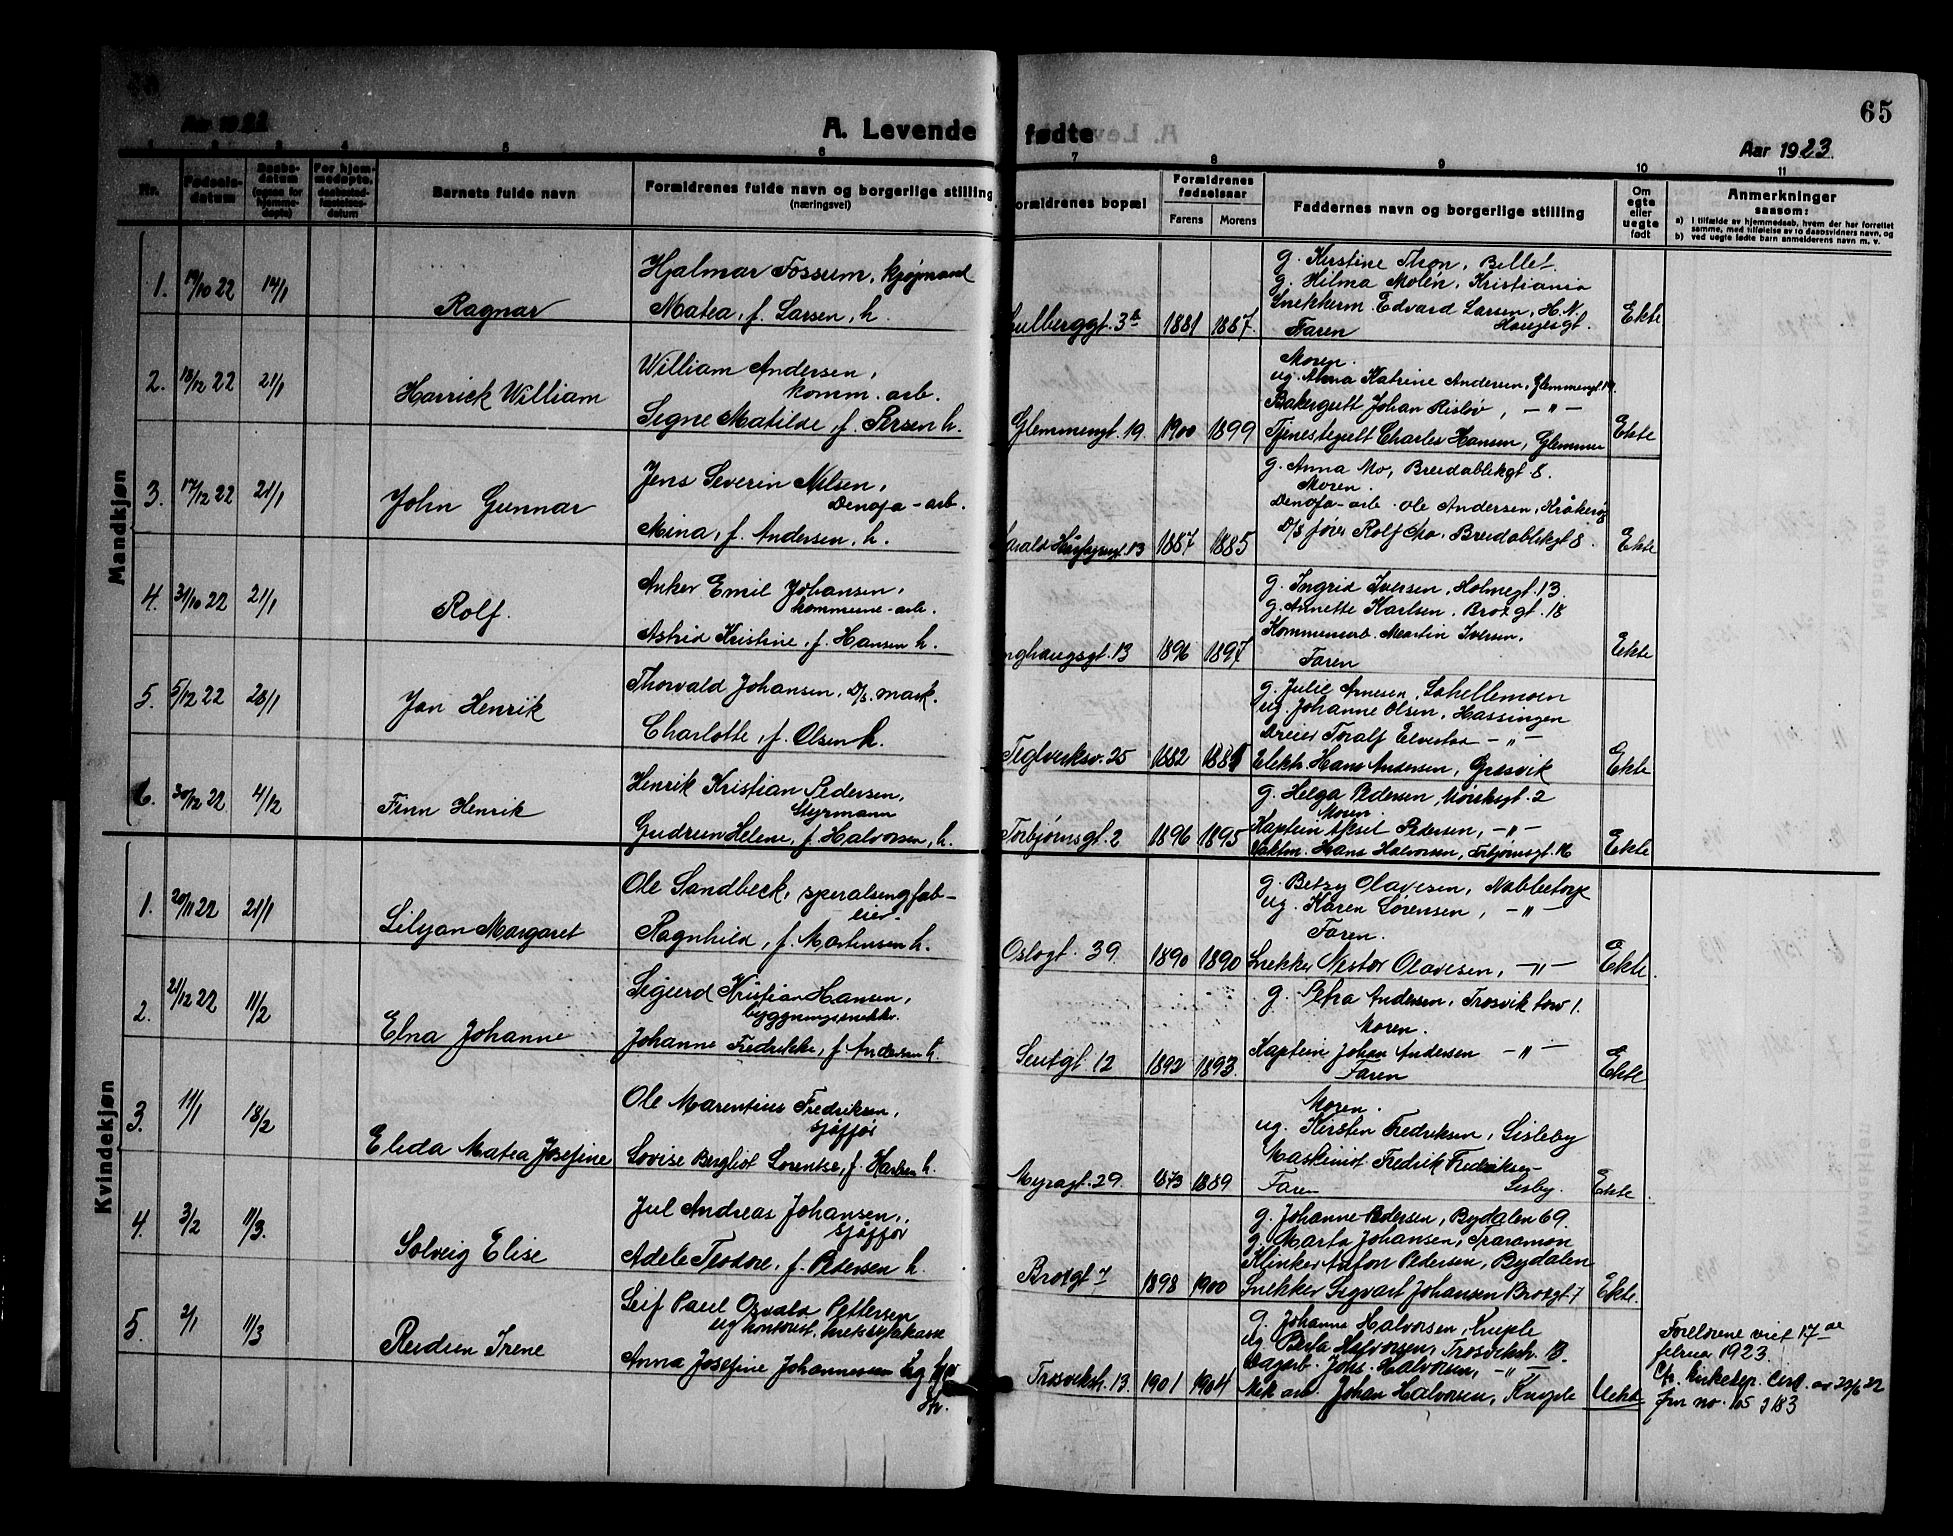 65
Aar 1922
A. Levende fødte
Aar 1923.
1 2 3 4 5 6 7 8 9 10 11
Nr.
Fødsels-
datum
Daabs-
datum
(ogsaa for
hjemme-
døpte)
For hjem-
medøpte.
daabssted-
fæstelses-
datum
Barnets fulde navn
Forældrenes fulde navn og borgerlige stilling
(næringsvei)
Forældrenes bopæl
Forældrenes
fødselsaar
Farens Morens
Faddernes navn og borgerlige stilling
Om
egte
eller
uegte
født
Anmerkninger
saasom:
a) I tilfælde av hjemmedaab, hvem der har forrettet
samme, med tilføielse av to daabsvidners navn, og
b) ved uegte fødte barn anmelderens navn m. v.
Mandkjøn
1. 19/10 22 14/1
Ragnar
Hjalmar Fossum, kjøpmand
Matea, f. Larsen, h.
1881 1887.
g. Kirstine Thon, Billet.
g. Hilma Molén, Kristiania
Snekkerm. Edvard Larsen, H. N.
Faren Haugesgt.
Ekte
2. 18/12 22 21/1
Harrick William
William Andersen,
komm. arb.
Signe Matilde, f. Iversen h.
Glemmengt. 19. 1900 1899
Moren.
ug. Alma Katrine Andersen, Glemmengt. 19.
Bakergutt Johan Risløv, — " —
Tjenestegutt Charles Hansen, Glemmen
Ekte
3. 17/12 22 21/1
John Gunnar
Jens Severin Nilsen,
Denofa-arb.
Mina, f. Andersen, h.
1887 1885
g. Anna Mo, Breidablikgt 8.
Moren.
Denofa-arb. Ole Andersen, Kråkerøy
D/S fører Rolf Mo, Breidablikgt 8.
Ekte
4. 31/10 22 21/1
Rolf.
Anker Emil Johansen,
kommune-arb.
Astrid Kristine, f. Hansen h.
1896 1897
g. Ingrid Iversen, Holmegt. 13.
g. Annette Karlsen, Brogt. 18
Kommunearb. Martin Iversen.
Faren
Ekte
5. 5/12 22 28/1
Jan Henrik
Thorvald Johansen, D/S. mask.
Charlotte, f. Olsen h.
Teglverksv. 25 1882
g. Julie Arnesen, Lahellemoen
ug. Johanne Olsen, Hassingen
Dreier Toralf Elvestad — " —
Elektr. Hans Andersen, Gresvik
Ekte
6. 30/12 22 4/12
Finn Henrik
Henrik Kristian Pedersen,
Styrmann
Gudrun Helene, f. Halvorsen, h.
Torbjørnsgt. 2 1896 1895
g. Helga Pedersen, 2
Moren.
Kaptein Aksel Pedersen, — " —
Vaktm. Hans Halvorsen, Torbjørnsgt. 16
Ekte
Kvindekjøn
1. 20/11 22 21/1
Lilyan Margaret
Ole Sandbeck, speralsengfab-
eier
Ragnhild, f. Martinsen h.
Oslogt. 39. 1890 1890
g. Betzy Olavesen, Nabbetorp
ug. Karen Sørensen, — " —
Faren.
Snekker Nestor Olavesen, — " —
Ekte.
2. 21/12 22 11/2
Elna Johanne
Sigurd Kristian Hansen,
byggningssnekker.
Johanne Fredrikke, f. Andersen h.
12 1892 1893.
g. Petra Andersen, Trosvik tow 1.
Moren.
Kaptein Johan Andersen — " —
Faren
Ekte
3. 11/1 18/2
Elida Matea Josefine
Ole Marentius Fredriksen,
sjåfør
Lovise Bergliot Lorentse, f. Karlsen h.
Myragt. 29. 1873 1889
Moren.
ug. Kirsten Fredriksen, Lisleby
Maskinist Fredrik Fredriksen
Faren Lisleby.
Ekte.
4. 3/2 11/3.
Solveig Elise
Jul Andreas Johansen,
sjåfør
Adele Teodore, f. Pedersen h.
Brogt 7 1898 1900
g. Johanne Pedersen, Bydalen 69.
g. Marta Johansen, Traramoen
Klinker Anton Pedersen, Bydalen
Snekker Sigvart Johansen Brogt. 7
Ekte.
5. 2/1 11/3
Reidun Irene
Leif Paul Osvald Pettersen
ug kontorist,
Anna Josefine Johannessen ug
Trosvikstr. 13. 1901 1904
g. Johanne Halvorsen, Kniple
ug. Berta Halvorsen, Trosvikstr. 13.
Dagarb. Johs. Halvorsen, — " —
Mek arb. Johan Halvorsen, Kniple
Uekte
Foreldrene viet 17de
februar 1923.
Cfr. kirkedep. cirk. av 22/6 22
Jnr no. 105 183